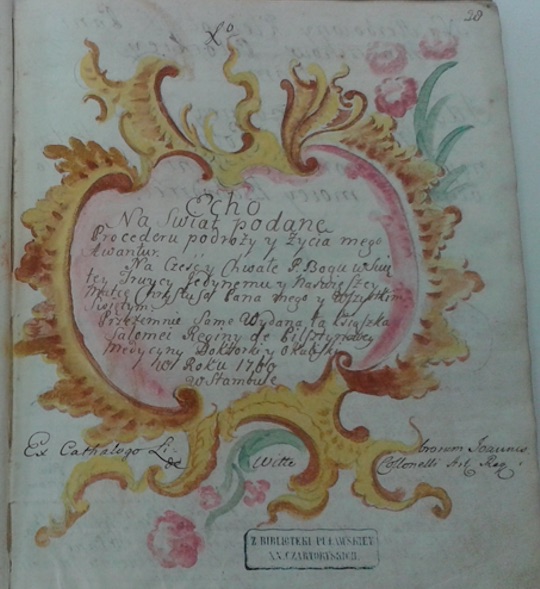 28
Echo
Na Swiat podane
Procederu podroży y Życia mego
Awantur.
Na Cześć y Chwałę P. Bogu w Swię
tey Truycy Jedynemu y Naswiętszey
Matce Chrystusa Pana mego y Wszystkim
Swiętym.
Przezemnie Same Wydana ta Książka
Salomei Reginy de Pilsztynowey
Medycyny Doktorki y Okulistki
Roku 1760
w Stambule
Ex Cathalogo Li- brorum Joannis
de Witte Collonelli Art. Reg.
Z BIBLIOTEKI PUŁAWSKIEY
XX. CZARTORYSKICH.